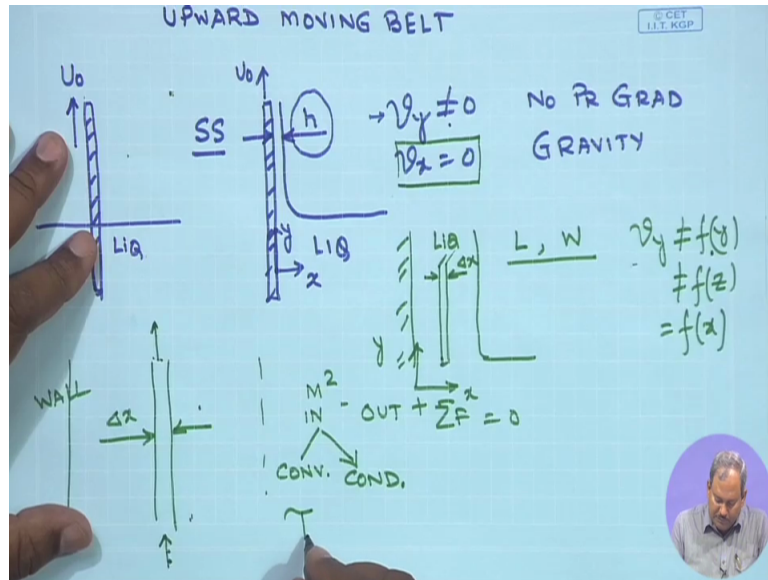 UPWARD MOVING BELT
© CET
I.I.T. KGP
U₀
LIQ
U₀
SS
h
y
LIQ
x
→ ϑy ≠ 0
ϑx = 0
NO PR GRAD
GRAVITY
LIQ
Δx
y
x
L, W
ϑy ≠ f(y)
≠ f(z)
= f(x)
WALL
Δx
M²
IN - OUT + ΣF = 0
CONV. COND.
τ